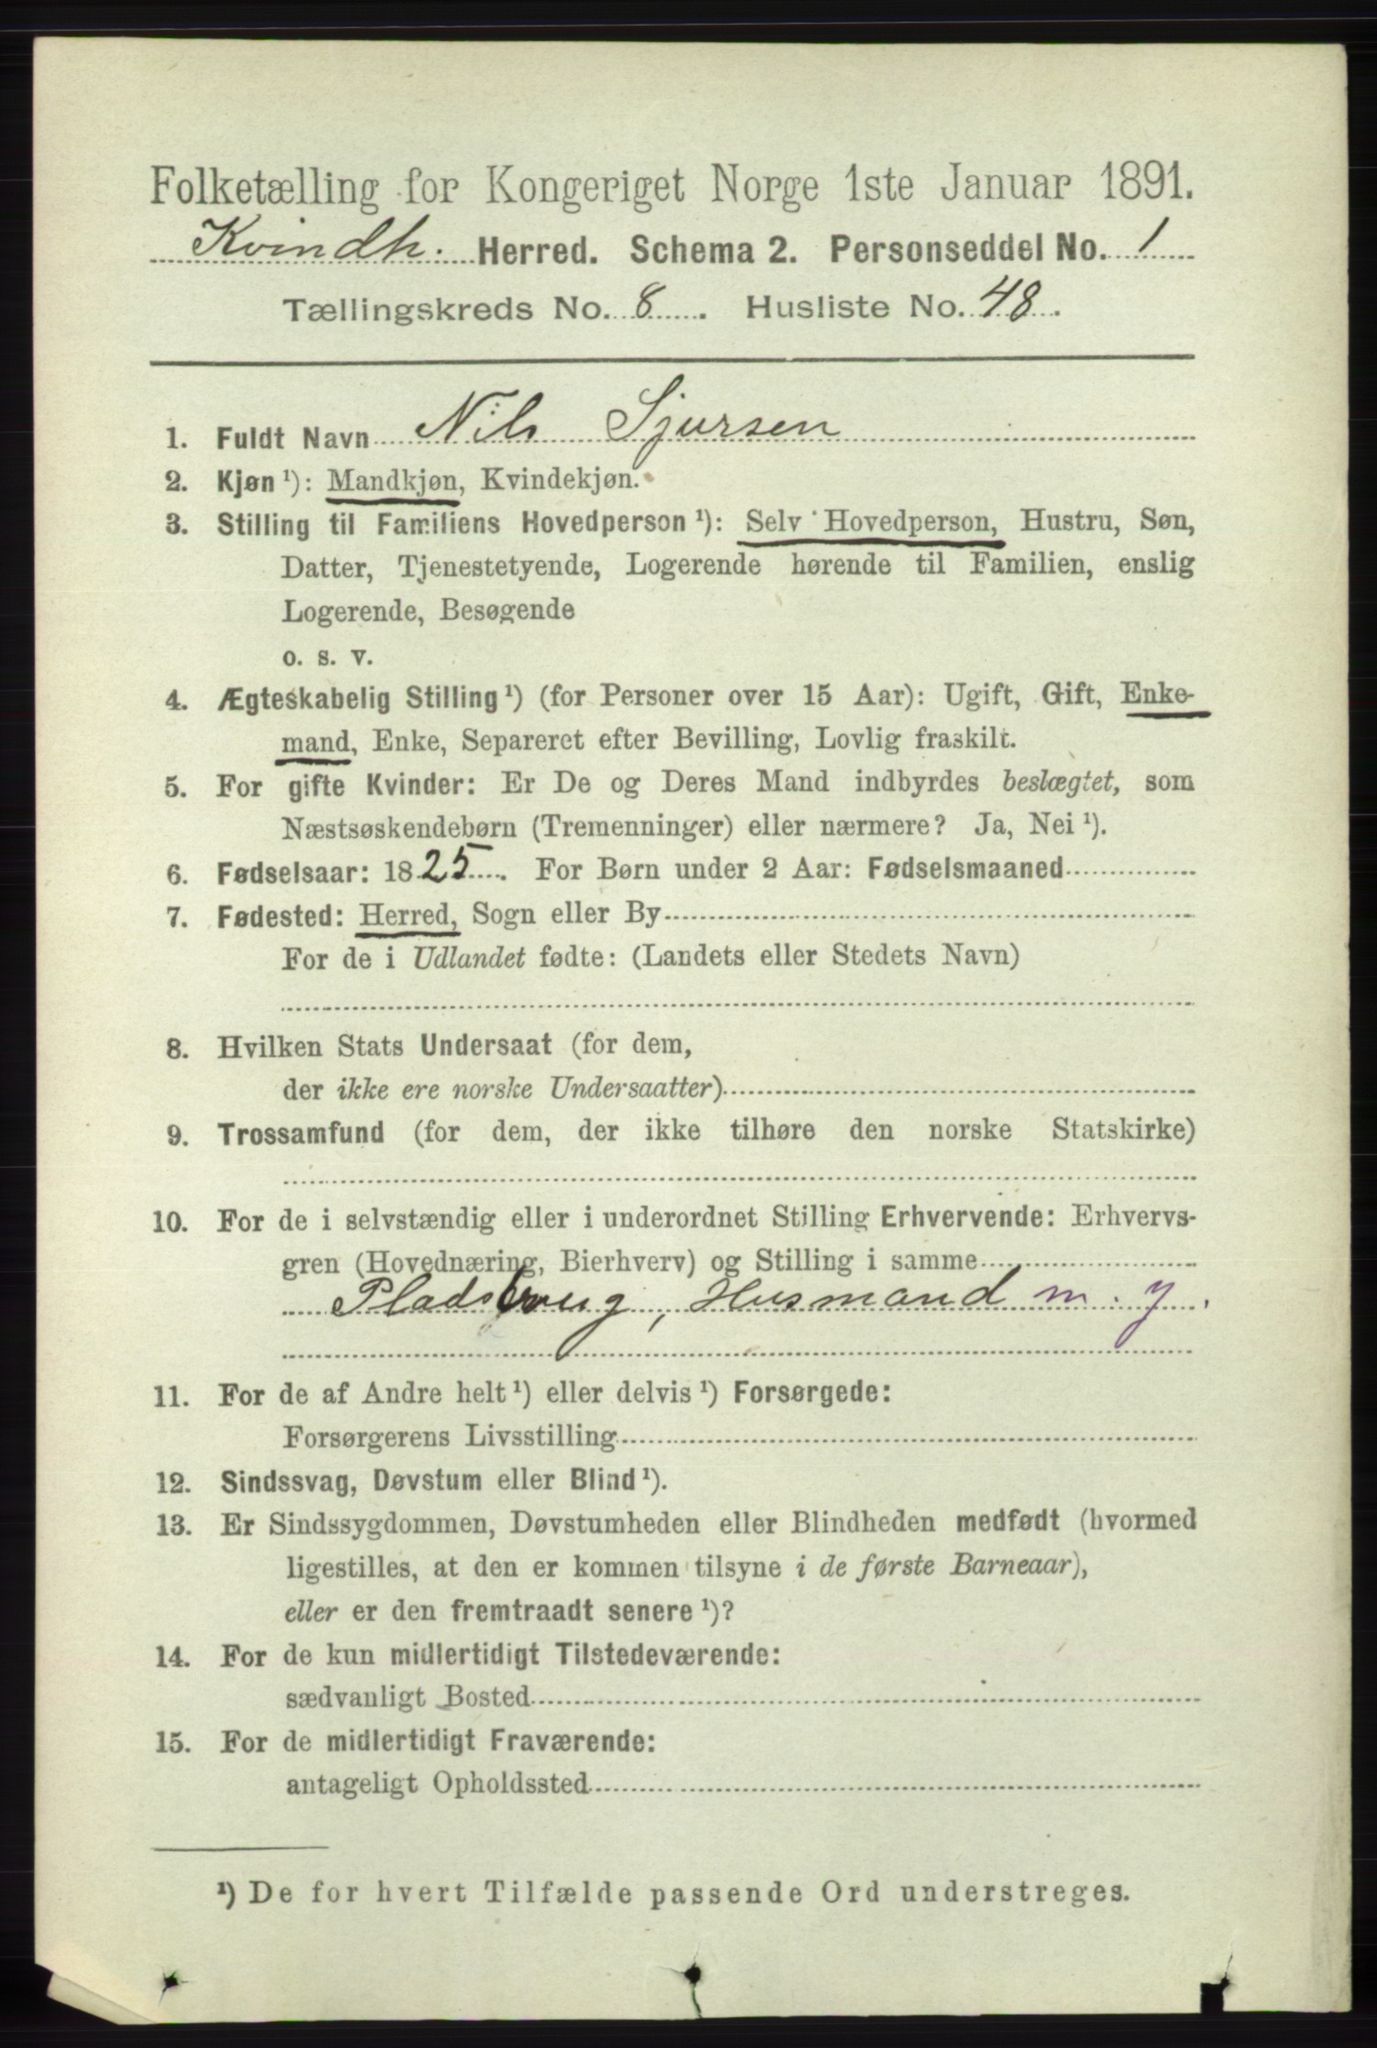 Folketælling for Kongeriget Norge 1ste Januar 1891.
Kvindh. Herred. Schema 2. Personseddel No. 1
Tællingskreds No. 8. Husliste No. 48.
1. Fuldt Navn Nils Sjursen
2. Kjøn ¹): Mandkjøn, Kvindekjøn.
3. Stilling til Familiens Hovedperson ¹): Selv Hovedperson, Hustru, Søn,
Datter, Tjenestetyende, Logerende hørende til Familien, enslig
Logerende, Besøgende
o. s. v.
4. Ægteskabelig Stilling ¹) (for Personer over 15 Aar): Ugift, Gift, Enke-
mand, Enke, Separeret efter Bevilling, Lovlig fraskilt.
5. For gifte Kvinder: Er De og Deres Mand indbyrdes beslægtet, som
Næstsøskendebørn (Tremenninger) eller nærmere? Ja, Nei ¹).
6. Fødselsaar: 1825. For Børn under 2 Aar: Fødselsmaaned
7. Fødested: Herred, Sogn eller By
For de i Udlandet fødte: (Landets eller Stedets Navn)
8. Hvilken Stats Undersaat (for dem,
der ikke ere norske Undersaatter)
9. Trossamfund (for dem, der ikke tilhøre den norske Statskirke)
10. For de i selvstændig eller i underordnet Stilling Erhvervende: Erhvervs-
gren (Hovednæring, Bierhverv) og Stilling i samme
Pladsbrug, Husmand m. j.
11. For de af Andre helt ¹) eller delvis ¹) Forsørgede:
Forsørgerens Livsstilling
12. Sindssvag, Døvstum eller Blind ¹).
13. Er Sindssygdommen, Døvstumheden eller Blindheden medfødt (hvormed
ligestilles, at den er kommen tilsyne i de første Barneaar),
eller er den fremtraadt senere ¹)?
14. For de kun midlertidigt Tilstedeværende:
sædvanligt Bosted
15. For de midlertidigt Fraværende:
antageligt Opholdssted
¹) De for hvert Tilfælde passende Ord understreges.